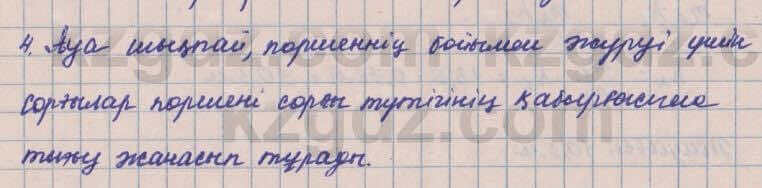 4. Ауа шықпай, поршеннің бойымен жүруі үшін
сорғылар поршені сорғы түтігінің қабырғасына
тығыз жанасып тұрады.
kzgdz.com